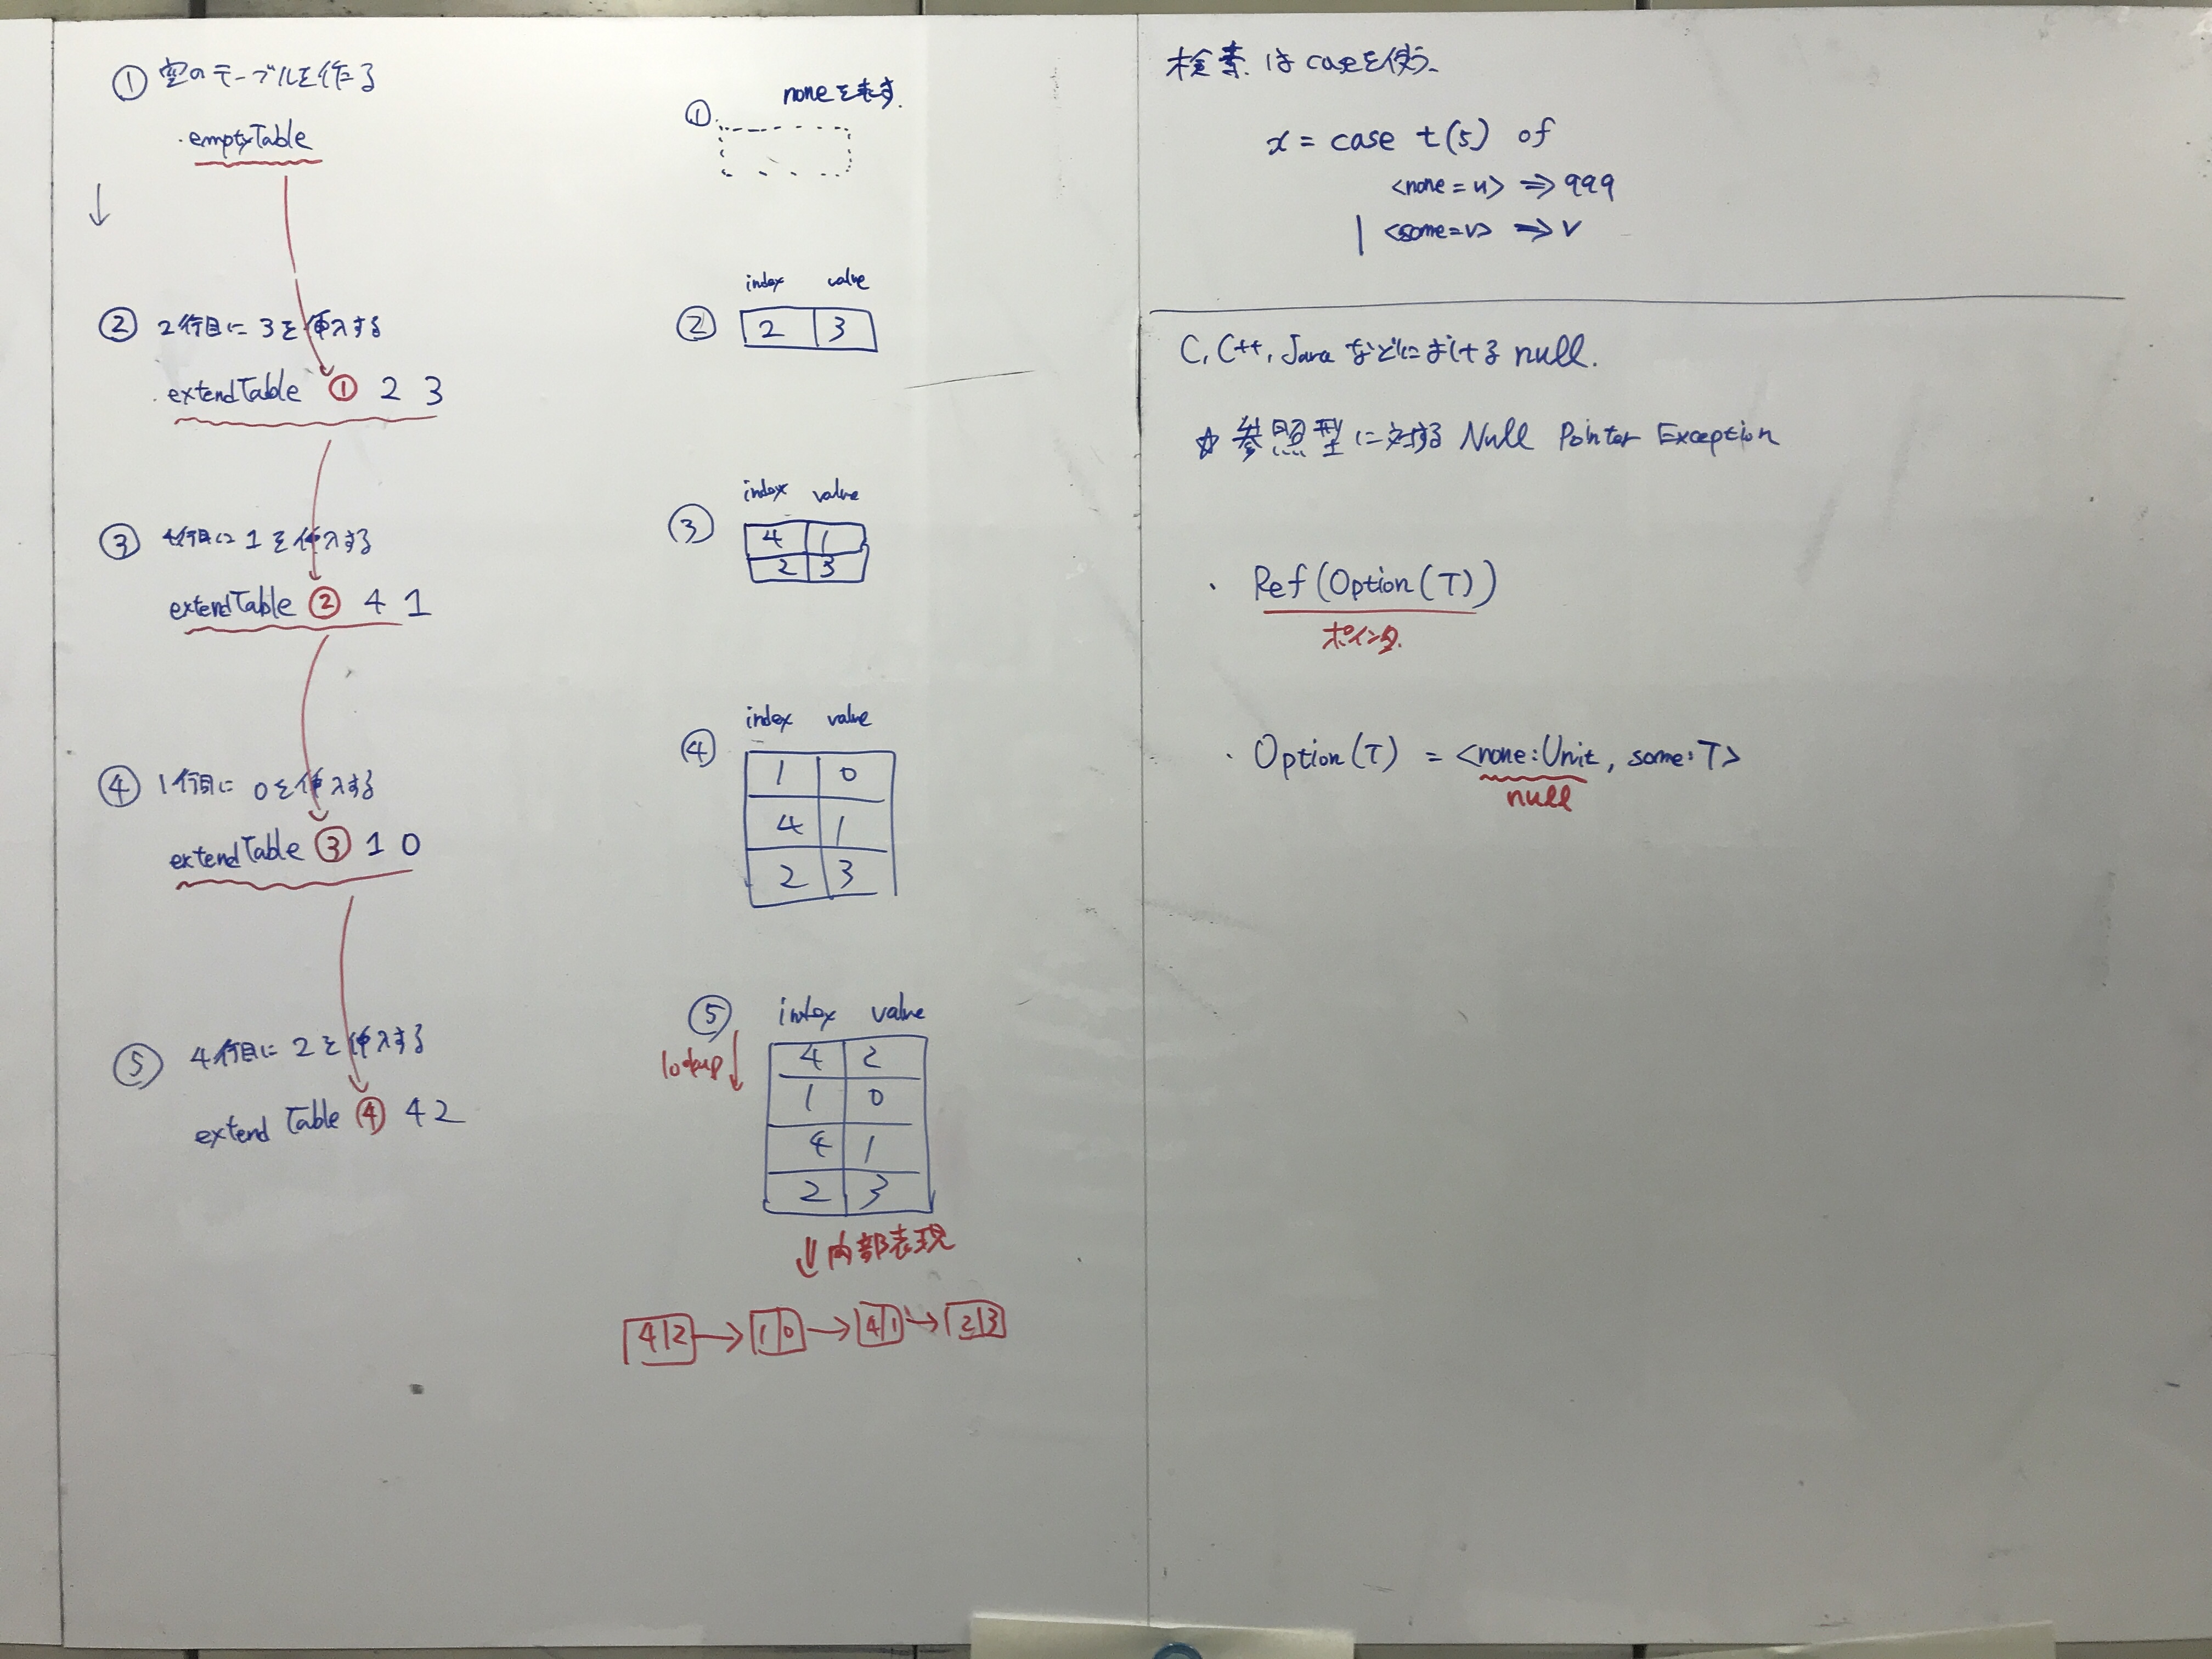 ① 空のテーブルを作る
emptyTable
② 2行目に 3を挿入する
extendTable ① 2 3
③ 4行目に 1を挿入する
extendTable ② 4 1
④ 1行目に 0を挿入する
extendTable ③ 1 0
⑤ 4行目に 2を挿入する
extend Table ④ 4 2
① noneを表す.
② index value
2 3
③ index value
4 1
2 3
④ index value
1 0
4 1
2 3
⑤ index value
lookup
4 2
1 0
4 1
2 3
⇓ 内部表現
4|2 → 1|0 → 4|1 → 2|3
検索はcaseを使う.
x = case t(5) of
<none = u> ⇒ 999
| <some=v> ⇒ v
C, C++, Java などにおける null.
☆ 参照型に対する Null Pointer Exception
・ Ref(Option(T))
ポインタ.
・ Option(T) = <none:Unit, some:T>
null